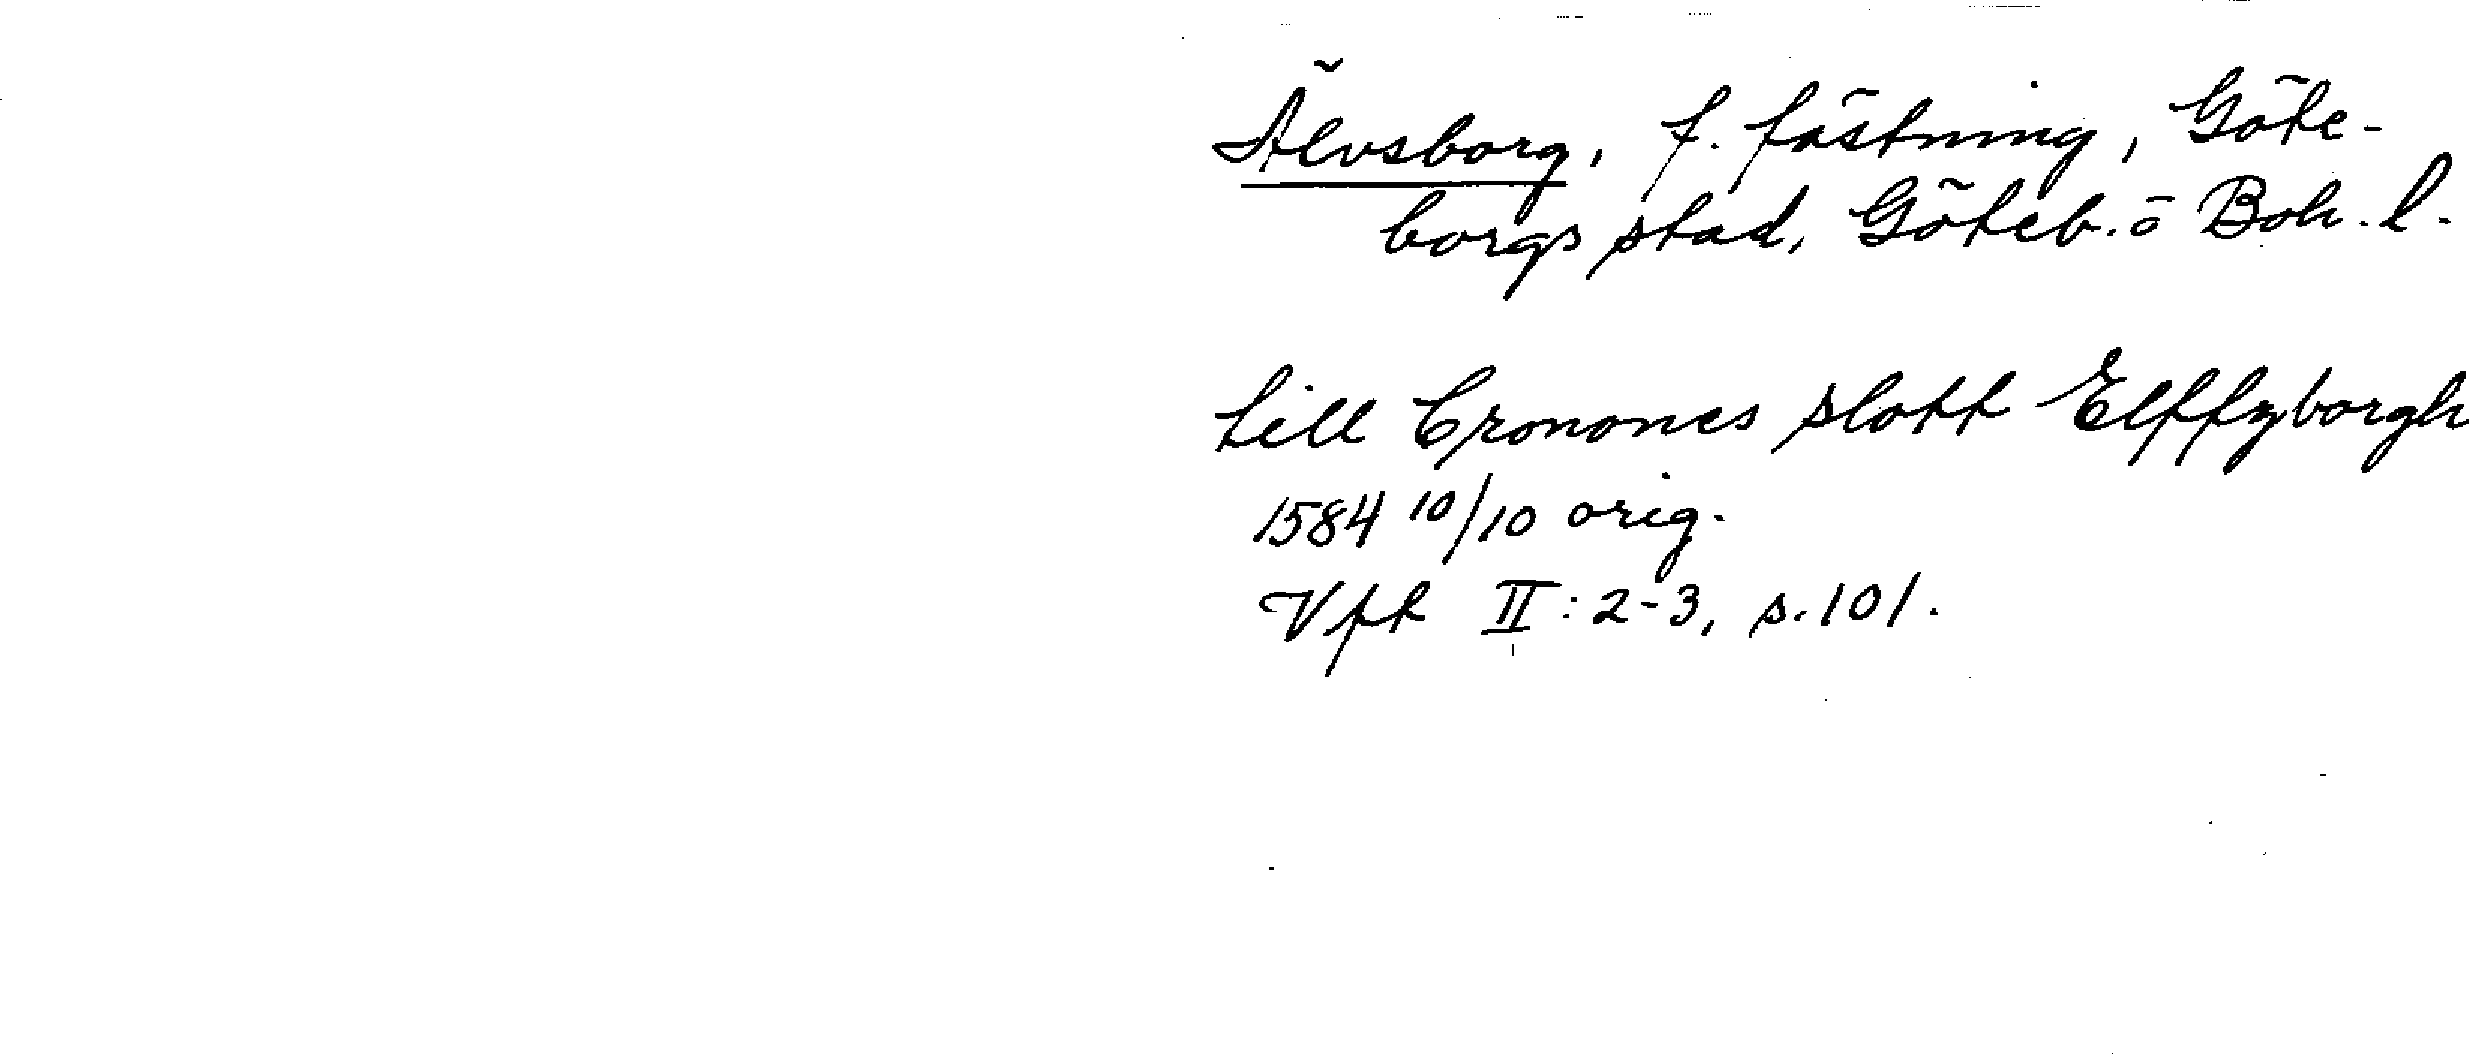 Älvsborg, f. fästning, Göte-
borgs stad, Göteb. o Boh. l.
till Cronones slott Elffzborgh
1584 10/10 orig.
Vft II: 2-3, s. 101.